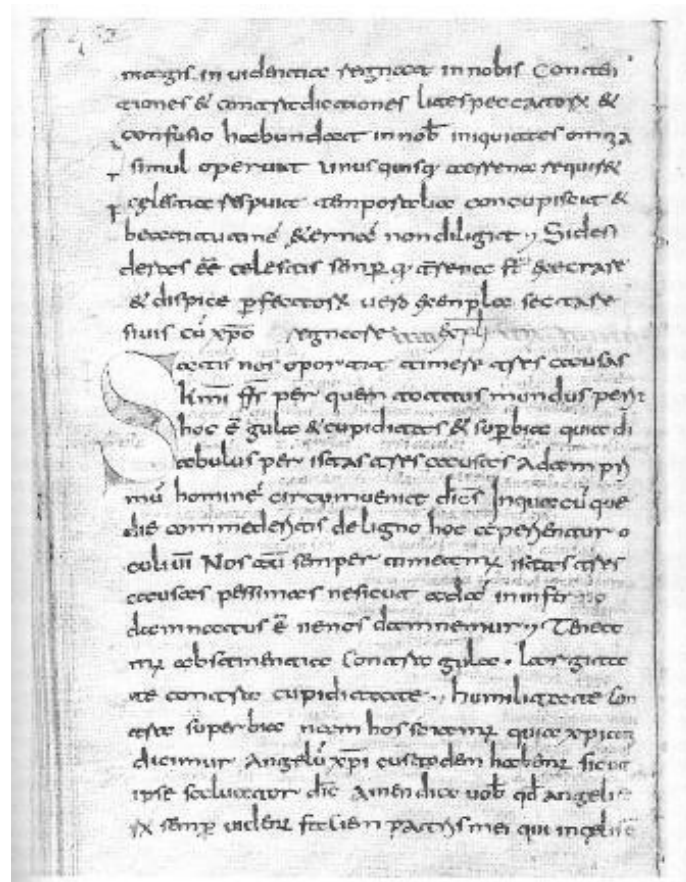 magis. inuidentia regnat innobis Conten
tiones & contradictiones lites peccator℞ &
confusio habundat in nob̄ iniquitates omnia
simul operant unusquisq; terrena requir&
celestia respuit temporalia concupiscit &
beatitudinē &ernā non diligit ; Si desi
deras eē celestis semp̄ q; terrena st̄ execrare
& dispice perfector℞ uero exempla sectare
siuis cū xp̄o regnare
Satis nos oportat timere tres causas
k̄mi fr̄s per quem totatus mundus perit
hoc ē gula & cupiditas & superbia quia di
abulus per istas tres causas Adam pri
mū hominē circumuenit dic̄s Inquacūque
die commederitis deligno hoc aperientur o
culi ur̄i Nos aū semper timeam℞ istas tres
causas pessimas nesicut adā in inferno
damnatus ē nenos damnemur ; Tenea
m℞ abstinentia Contra gula . largita
te contra cupiditate . , humilitate Con
tra superbia nam hos sciam℞ quia xpiani
dicimur Angelū xp̄i custodem habem℞ sicut
ipse saluator dic̄ Amen dico uob̄ qd̄ angeli
r℞ semp̄ uiden℞ faciem patris mei qui incelis ē